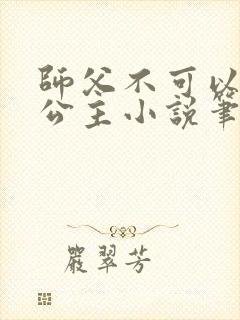 師父不可以
公主小說筆
嚴翠芳